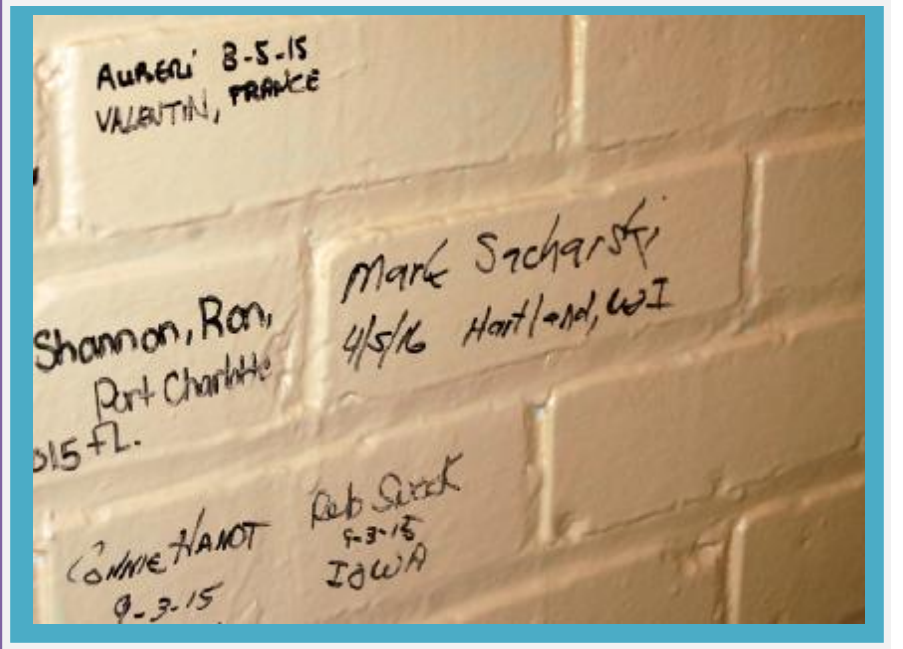 AUBERi 8-5-15
VALENTIN, FRANCE
Mark Sacharski
4/5/16 Hartland, WI
Shannon, Ron,
Port Charlotte
015 FL.
Connie HANDT
9-3-15
Reb
9-3-15
IOWA